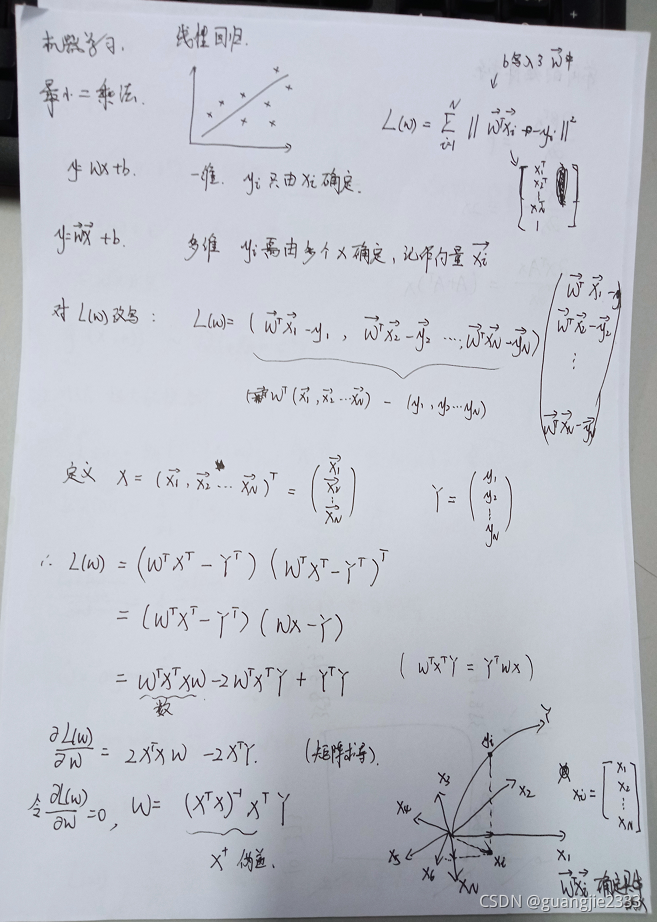 机器学习. 线性回归.
最小二乘法.
b写入了 w⃗ 中
L(w) = Σ_{i=1}^{N} || w⃗ᵀx⃗i - yi ||²
[ x₁ᵀ x₂ᵀ ⋮ 1 ]
y = wx+b. 一维. yi 只由 xi 确定.
y = w⃗x⃗ + b. 多维 yi 需由多个 x 确定, 记作向量 x⃗i
对 L(w) 改写: L(w) = ( w⃗ᵀx⃗₁ - y₁ , w⃗ᵀx⃗₂ - y⃗₂ ..., w⃗ᵀx⃗N - y⃗N ) ( w⃗ᵀx⃗₁ - y w⃗ᵀx⃗₂ - y⃗₂ ⋮ w⃗ᵀx⃗N - y⃗N )
wᵀ(x⃗₁, x⃗₂ ... x⃗N) - (y₁, y₂ ... yN)
定义 X = (x⃗₁, x⃗₂ ... x⃗N)ᵀ = ( x⃗₁ x⃗₂ ⋮ x⃗N ) Y = ( y₁ y₂ ⋮ yN )
∴ L(w) = (WᵀXᵀ - Yᵀ) (WᵀXᵀ - Yᵀ)ᵀ
= (WᵀXᵀ - Yᵀ) (WX - Y)
= WᵀXᵀXW - 2WᵀXᵀY + YᵀY ( WᵀXᵀY = YᵀWX )
数
∂L(w)/∂W = 2XᵀXW - 2XᵀY. (矩阵求导).
令 ∂L(w)/∂W = 0, W = (XᵀX)⁻¹ Xᵀ Y
X⁺ 伪逆.
Y
yi
x₃
x₂
x₄
x₅
x₆
xN
xi
x₁
xi = [ x₁ x₂ ⋮ xN ]
w⃗ᵀx⃗i 确定
CSDN @guangjie2333